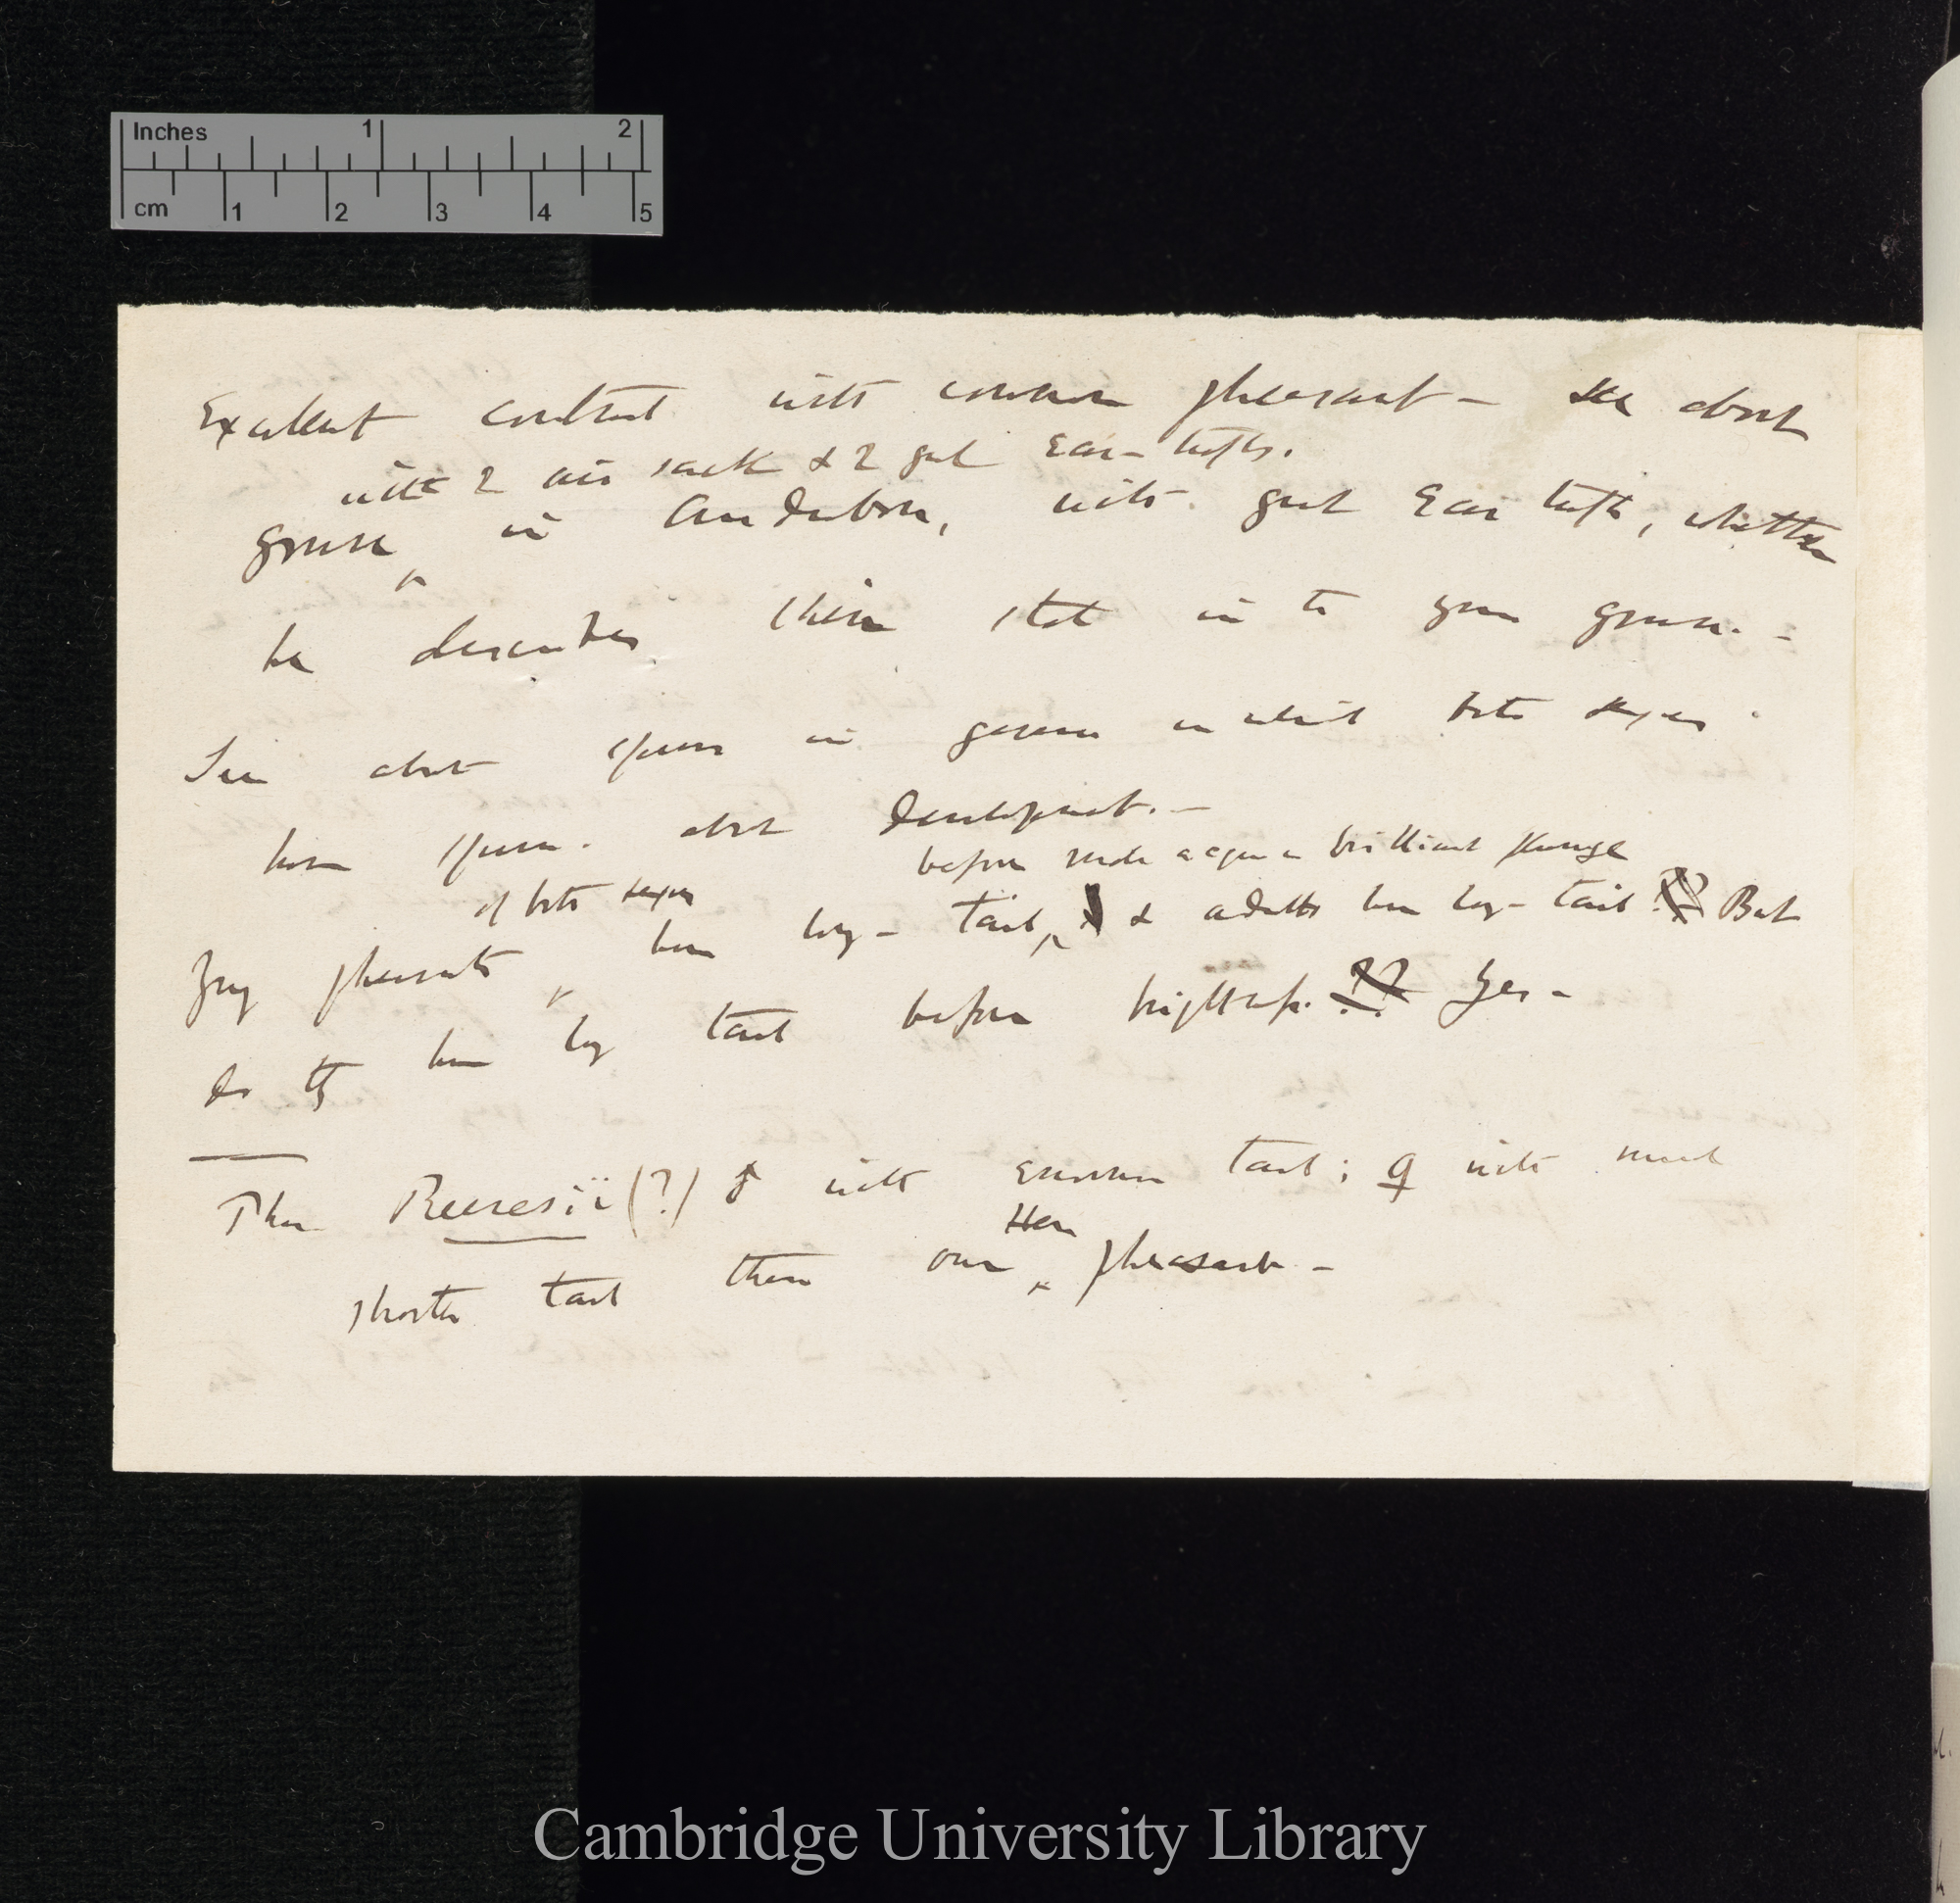 Inches 1 2
cm 1 2 3 4 5
Excellent contrast with common pheasant — see about
with 2 air sacks & 2 great Ear-tufts.
grouse in Audubon, with great Ear tufts, whether
he describes their state in the young grouse. —
See about spurs in genera in which both sexes
have spurs. about development. —
before male acquire brilliant plumage
of both sexes
Young pheasants have long-tails, & adults have long-tails But
do they have long tails before bright sex. ?? Yes —
Then Reevesii (?) ♂ with enormous tail; ♀ with much
Hen
shorter tail than our pheasant —
Cambridge University Library